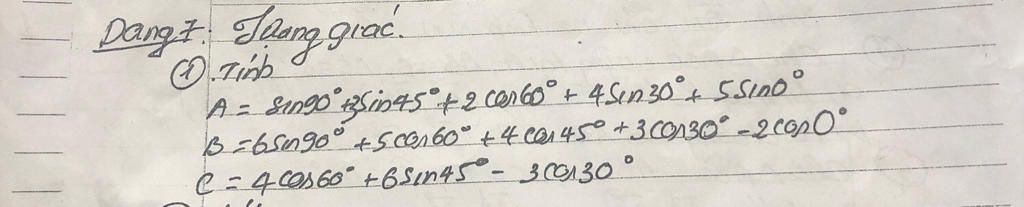 Dạng 7: Lượng giác.
① Tính
A = sin90° + 3sin45° + 2cos60° + 4sin30° + 5sin0°
B = 6sin90° + 5cos60° + 4cos45° + 3cos30° - 2cos0°
C = 4cos60° + 6sin45° - 3cos30°